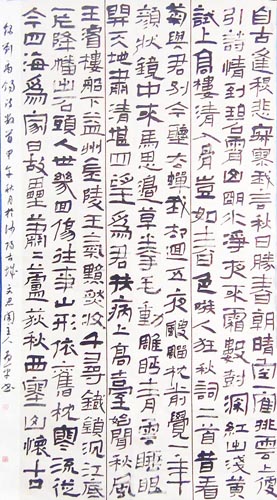 自古逢秋悲寂寥我言秋日勝春朝晴空一鶴排雲上便
引詩情到碧霄山明水淨夜來霜數樹深紅出淺黃
試上高樓清入骨豈如春色嗾人狂秋詞二首昔看
黃菊與君別今聽玄蟬我卻迴五夜颼飀枕前覺一年
顏狀鏡中來馬思邊草拳毛動雕眄青雲睡眼
開天地肅清堪四望為君扶病上高臺始聞秋風
王濬樓船下益州金陵王氣黯然收千尋鐵鎖沉江底
一片降幡出石頭人世幾回傷往事山形依舊枕寒流從
今四海為家日故壘蕭蕭蘆荻秋西塞山懷古
錄劉禹錫詩數首甲午秋月於洛陽古主人書